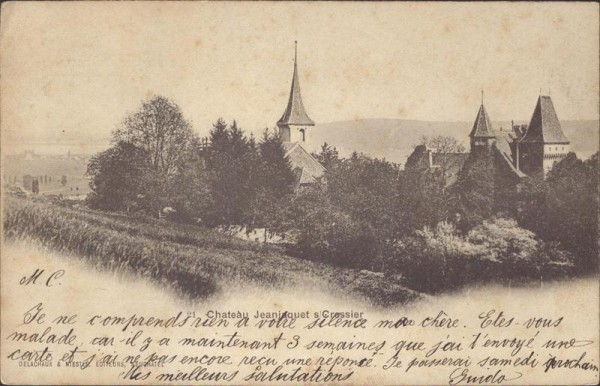 M C.
21 Chateau Jeanjaquet s/Cressier
Je ne comprends rien à votre silence ma chère. Etes-vous
malade, car il y a maintenant 3 semaines que j'ai t'envoyé une
carte et j'ai ne pas encore reçu une réponse. Je passerai samedi prochain
DELACHAUX & NIESTLÉ, EDITEURS, NEUCHATEL
Mes meilleurs salutations Guido